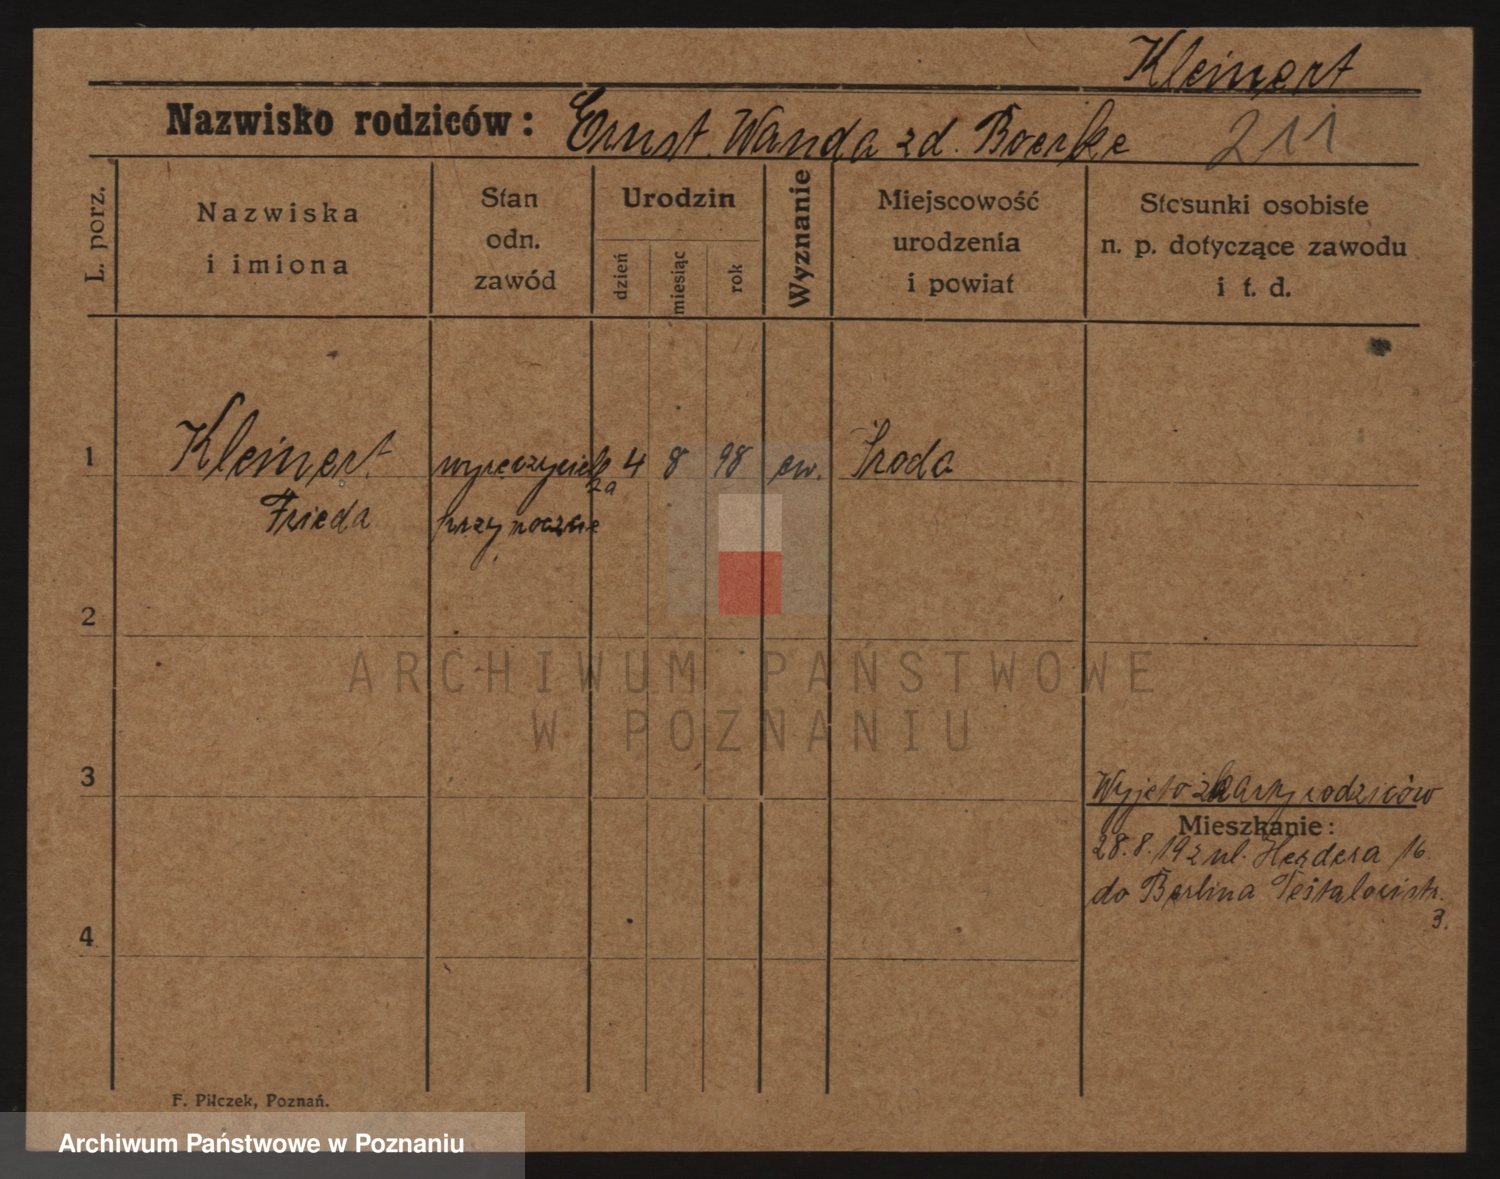 Kleinert
Nazwisko rodziców: Ernst. Wanda zd. Boerke 211
L. porz.
Nazwiska
i imiona
Stan
odn.
zawód
Urodzin
dzień
miesiąc
rok
Wyznanie
Miejscowość
urodzenia
i powiat
Stosunki osobiste
n. p. dotyczące zawodu
i t. d.
1 Kleinert 4 8 98 ew. Środa
Frieda przy poczcie
2
ARCHIWUM PAŃSTWOWE
W POZNANIU
3
Wyjęto z karty rodziców
Mieszkanie:
28.8.19 z ul. Herdera 16.
do Berlina Pestalocistr.
3.
4
F. Pilczek, Poznań.
Archiwum Państwowe w Poznaniu